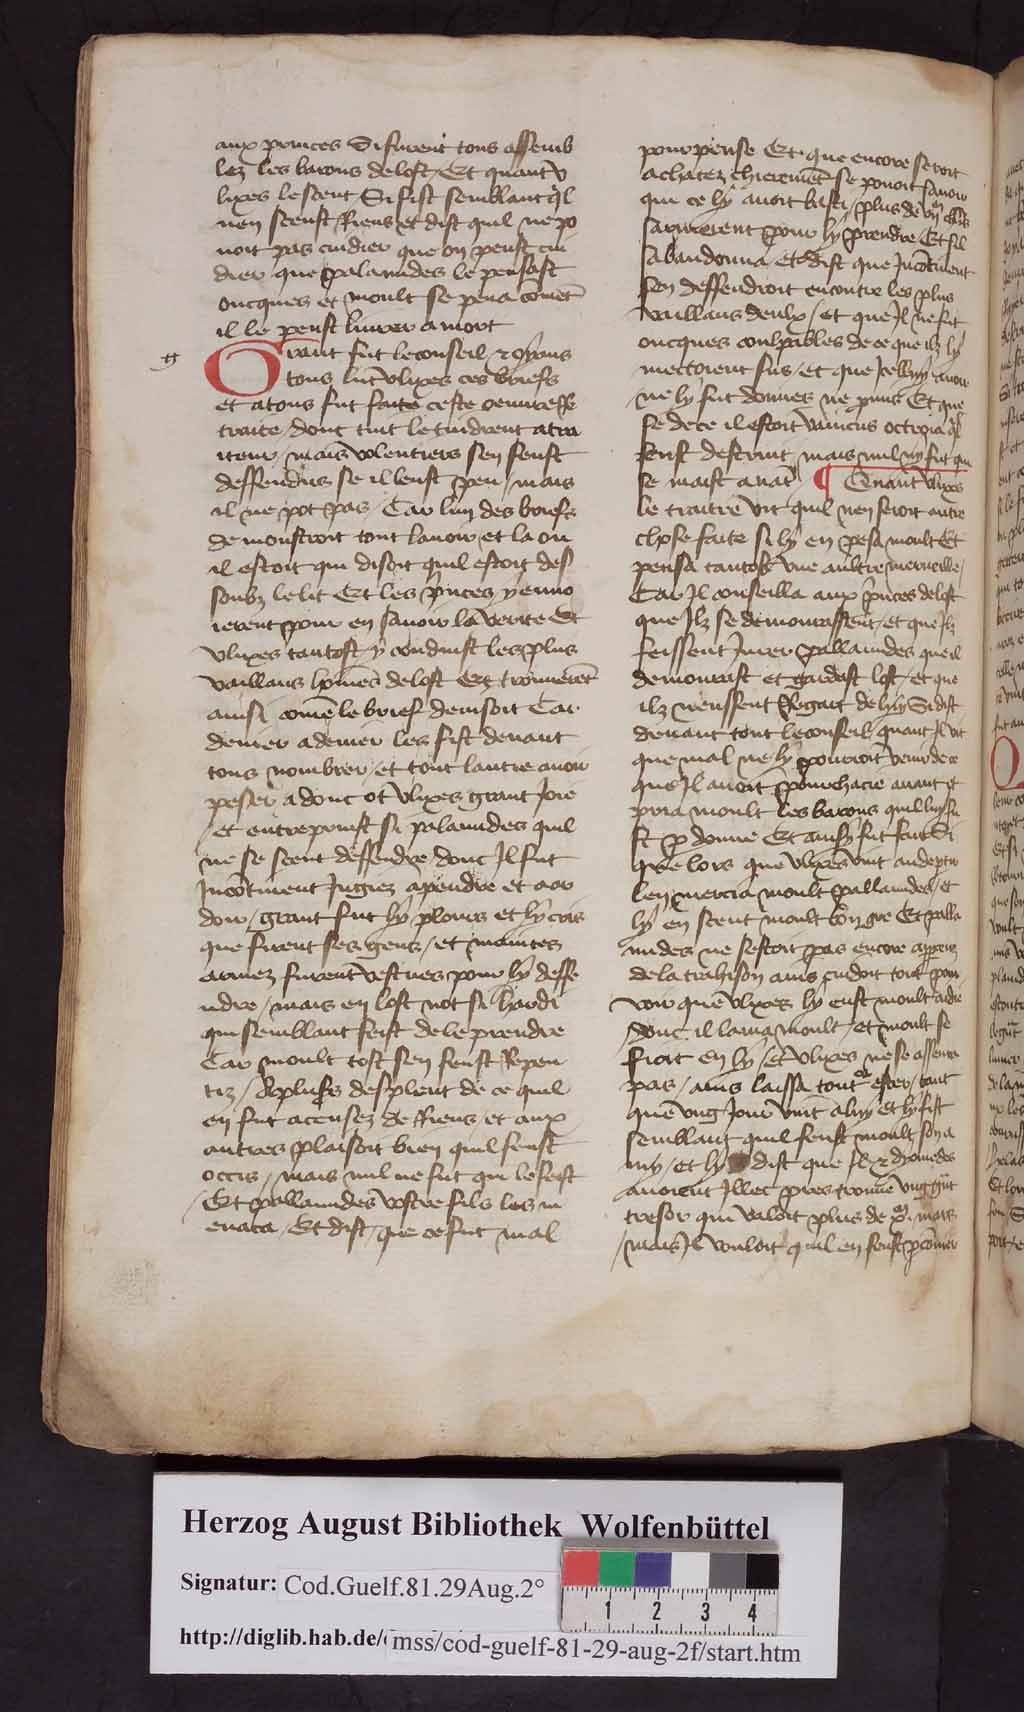 aux princes Si furent tous assemb
lez les barons de lost / Et quant v
lixes le scent Si fist semblant ql
nen sceust Riens et dist quil ne po
uoit pas cuidier que on peust cui
dier que palamides le pensast
oncques et moult se pena comēt
il le peust liurer a mort
g
Grant fut le conseil /
tous lut vlixes ces briefs
et a tous fut faite ceste oeuure
traite / dont tuit le tindrent a tra
itour / mais volentiers sen feust
deffendus se il leust peu / mais
il ne pot pas Car lun des briefs
demonstroit tout lauoir et la ou
il estoit qui disoit quil estoit des
soubz le lit Et les princes y enuo
ierent pour en sauoir la verite Et
vlixes tantost y conduist les plus
vaillans hōmes de lost Et trouuerēt
ainsi comē le brief deuisoit Car
denier a denier les fist deuant
tous nombrer / et tout lautre auoir
peser a donc ot vlixes grant Ioie
/ et entreprinst si palamides quil
ne se sceut deffendre donc Il fut
Incōtinent Iugiez a pendre et a ar
doir / grant fut ly plours et ly cris
que firent ses gens / et maintes
armez furent vestues pour ly deffe
ndre / mais en lost not si hardi
qui semblant feist de le prendre
Car moult tost sen feust Repen
tiz / A pluss desplent de ce quil
en fut accusez de Riens et aux
autres plaisoit bien quil feust
occis / mais nul ne fut qui le feist
/ Et pallamides vostre fils les
/ Et dist / que ce fut mal
pourpense Et que encore seroit
achatez chierement se pouoit sauoir
qui ce ly auoit basti / plus de
sarmerent pour ly prendre Et Il
sabandonna et dist que Incōtinent
sen deffendroit encontre les plus
vaillans deulx / et que Il ne fut
oncques coulpables de ce que ilz ly
mectoient sus / et que Icelluy auoir
ne ly fut donnes ne Et que
se de ce il estoit vaincus octroia ql
feust destruit mais nul ny fut qui
se meist auāt ¶ Quant vlixes
le traitre vit quil nen seroit autre
chose faite si ly en pesa moult Et
pensa tantost vne aultre merueille /
Car Il conseilla aux princes de lost
que Ilz se demourassent / et que Ilz
feissent Iurer pallamides que il
demourast et gardast lost / et que
ilz neussent Regart de luy Si dist
deuant tout le conseil / quant Il vit
que mal ne ly pouroit venir de ce
que Il auoit pourchacie auant et
pria moult les barons quil luy fu
st pdonne Et ainsy fut fait Si
que lors que vlixes vint
len mercia moult pallamides / et
ly en sceut moult bon gre Et palla
mides ne sestoit pas encore
de la trahison ains cuidoit tout pour
voir que vlixes ly eust moult aidie
donc il lama moult / et moult se
fioit en ly / et vlixes ne se
pas / ains laissa tout ester / tant
que vng Iour vint a luy et ly fist
semblant quil feust moult son a
my / et ly dist que Il z dyomedes
auoient Illec pres trouue vng gūt
tresor qui valoit plus de mars
/ mais Il vouloit quil en feust

Herzog August Bibliothek Wolfenbüttel
Signatur: Cod.Guelf.81.29Aug.2°
http://diglib.hab.de/ mss/cod-guelf-81-29-aug-2f/start.htm
1 2 3 4